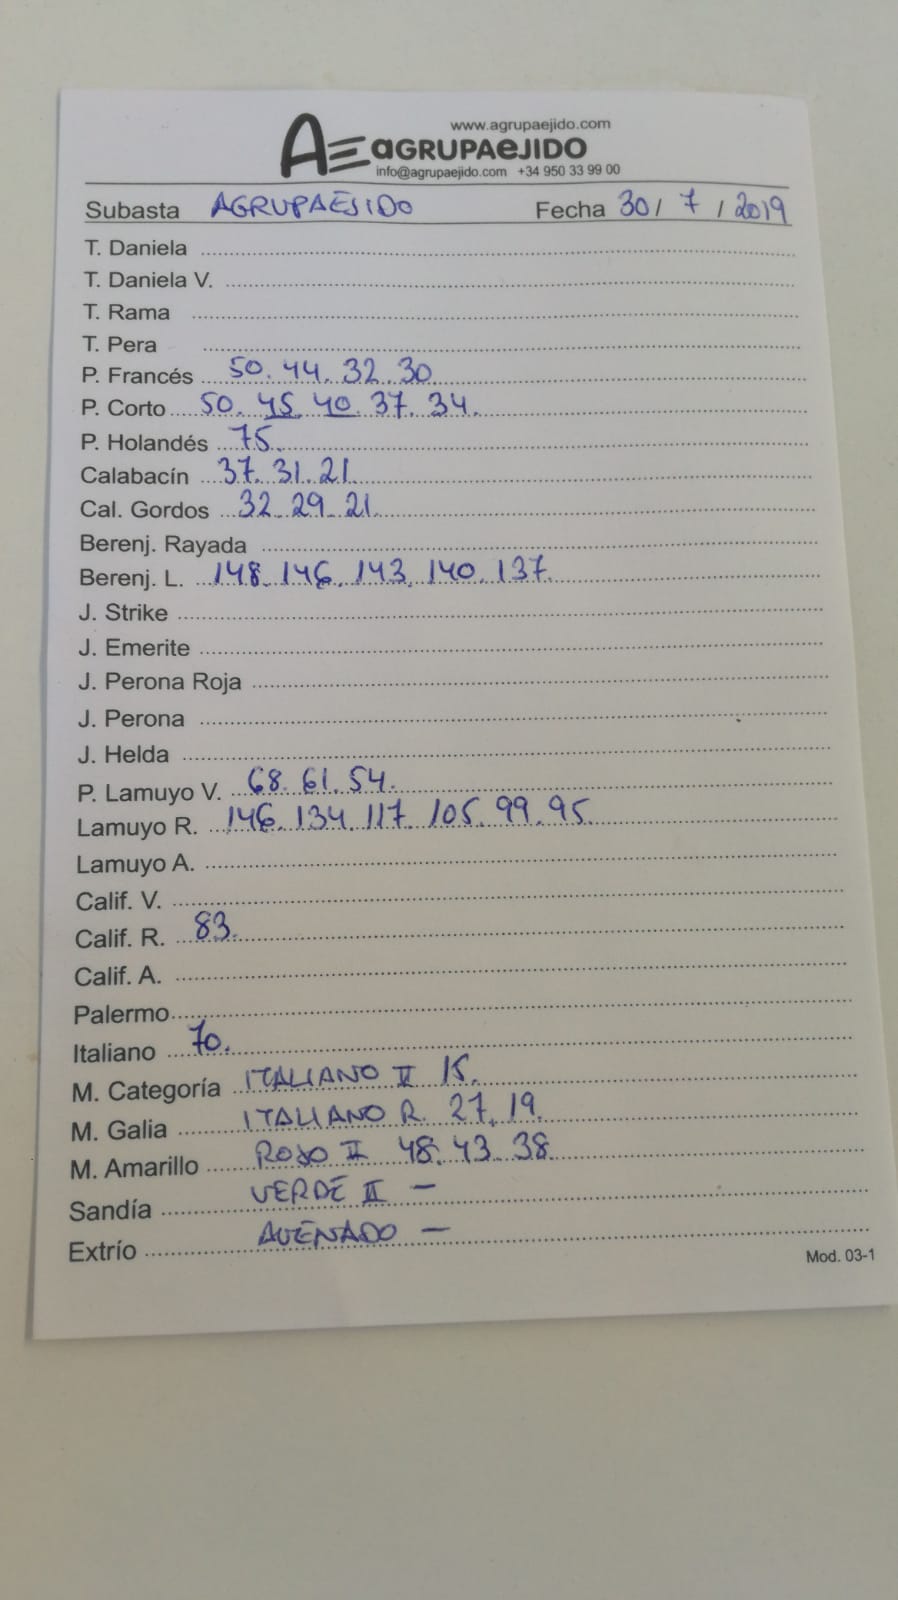 www.agrupaejido.com
AE aGRUPAeJIDO
info@agrupaejido.com +34 950 33 99 00
Subasta AGRUPAEJIDO Fecha 30 / 7 / 2019
T. Daniela
T. Daniela V.
T. Rama
T. Pera
P. Francés 50. 44. 32. 30.
P. Corto 50. 45. 40. 37. 34.
P. Holandés 75.
Calabacín 37. 31. 21.
Cal. Gordos 32. 29. 21.
Berenj. Rayada
Berenj. L. 148. 146. 143. 140. 137.
J. Strike
J. Emerite
J. Perona Roja
J. Perona
J. Helda
P. Lamuyo V. 68. 61. 54.
Lamuyo R. 146. 134. 117. 105. 99. 95.
Lamuyo A.
Calif. V.
Calif. R. 83.
Calif. A.
Palermo
Italiano 70.
M. Categoría ITALIANO II 15.
M. Galia ITALIANO R. 27. 19.
M. Amarillo ROJO II 48. 43. 38.
Sandía VERDE II —
Extrío AVENADO —
Mod. 03-1